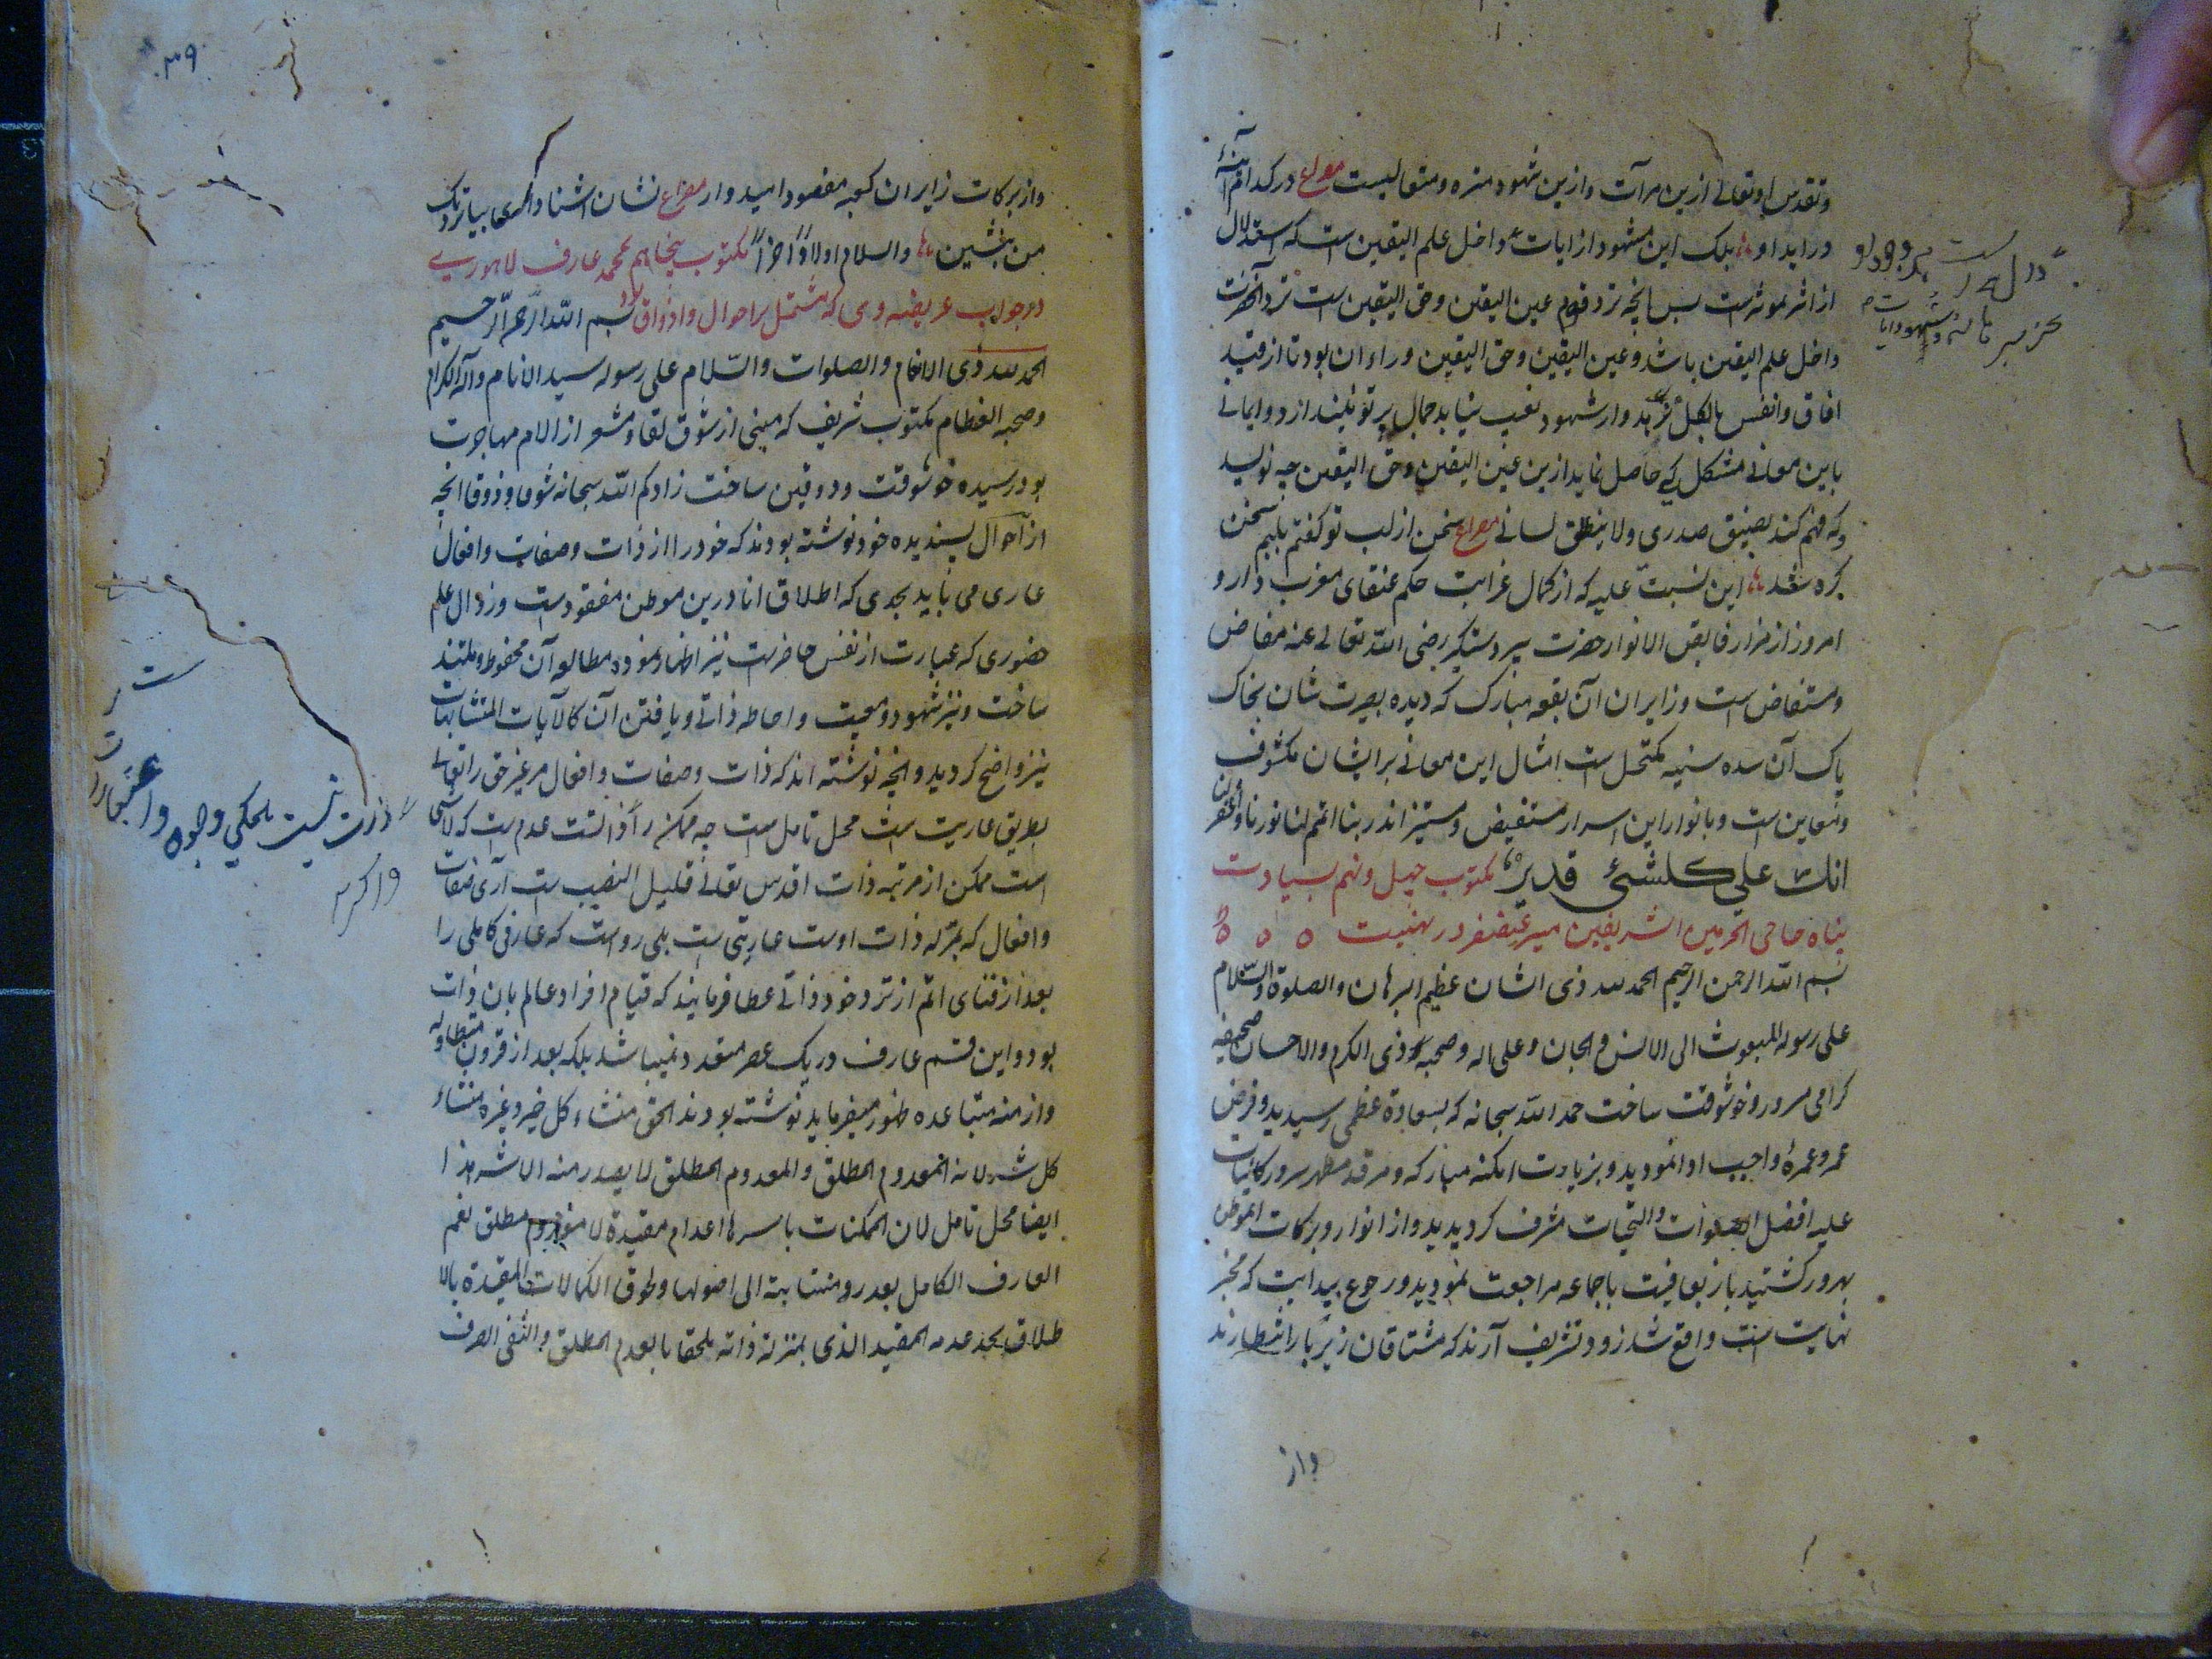 وتقدس او تعالی ازین مرآت وازین شهود منزه ومتعالیست مصراع در کدام آئنه
دراید او بلک این مشهود از ایات داخل علم الیقین است که استدلال
از اثر بموثر است پس انچه نزد قوم عین الیقین وحق الیقین است نزد آنحضرت
داخل علم الیقین باشد وعین الیقین وحق الیقین وراء ان بود تا از قید
افاق وانفس بالکل نرهد واز شهود غیب نیاید جمال پرتو نیندازد وایمانی
باین معانی مشکل که حاصل نماید ازین عین الیقین وحق الیقین چه نویسد
وکه فهم کند یضیق صدری ولا ینطلق لسانی مصراع سخن از لب تو گفتم بلبم سخن
گره شد این نسبت علیه که از کمال غرابت حکم عنقای مغرب دارد و
امروز از مزار فایض الانوار حضرت پیر دستگیر رضی الله تعالی عنه مفاض
ومستفاض است وزایران آن بقعه مبارک که دیده بصیرت شان بخاک
پاک آن سده سنیه مکتحل است امثال این معانی بر ایشان مکشوف
ومعاین است وبانوار این اسرار مستفیض ومستنیر اند ربنا اتمم لنا نورنا واغفر لنا
انک علی کلشئ قدیر مکتوب چهل ونهم بسیادت
پناه حاجی الحرمین الشریفین میر غضنفر در تهنیت
بسم الله الرحمن الرحیم الحمد لله ذی الشان عظیم البرهان والصلوة والسلام
علی رسوله المبعوث الی الانس والجان وعلی اله وصحبه ذوی الکرم والاحسان صحیفه
گرامی مسرور وخوشوقت ساخت حمد الله سبحانه که بسعادة عظمی رسیدید وفرض
عمر وعمرهٔ واجب ادا نمودید وبزیارت امکنه مبارکه ومرقد مطهر سرور کاینات
علیه افضل الصلوات والتحیات مشرف گردیدید واز انوار وبرکات آنموطن
بهرور گشتید باز بعافیت باجماعه مراجعت نمودید ورجوع ببدایت که مخبر
نهایت است واقع شد زود تشریف آرند که مشتاقان زیر بار انتظارند
واز
۳۹
واز برکات زایران کعبه مقصود امیدوار مصراع نشان اشنا داری بیا نزدیک
من بنشین والسلام اولا واخرا مکتوب پنجاهم بمحمد عارف لاهوری
در جواب عریضه وی که مشتمل بر احوال واذواق بود بسم الله الرحمن الرحیم
الحمد لله ذی الانعام والصلوات والسلام علی رسوله سید الانام وآله الکرام
وصحبه العظام مکتوب شریف که مبنی از شوق لقا ومشعر از الام مهاجرت
بود رسیده خوشوقت وذوقین ساخت زادکم الله سبحانه شوقا وذوقا انچه
از احوال پسندیده خود نوشته بودند که خود را از ذات وصفات وافعال
عاری می یابد بحدی که اطلاق انا درین موطن مفقود است وزوال علم
حضوری که عبارت از نفس حاضرست نیز اظهار نموده مطالعه آن محفوظ وملتذ
ساخت ونیز شهود ومعیت واحاطه ذاتی ویافتن آن کالآیات المتشابهات
نیز واضح گردید وانچه نوشته اند که ذات وصفات وافعال مر غیر حق را تعالی
بطریق عاریت است محل تامل است چه ممکن را ذاتست عدم است که لاشی
است ممکن از مرتبه ذات اقدس تعالی قلیل النصیب است آری صفات
وافعال که بمنزله ذات اوست عاریتی است بلی رواست که عارفی کاملی را
بعد از فنای اتم از نزد خود ذاتی عطا فرمایند که قیام افراد عالم بان ذات
بود واین قسم عارف در یک عصر متعدد نمیباشد بلکه بعد از قرون متطاوله
وازمنه متباعده ظهور میفرماید نوشته بودند الحق منشاء کل خیر وغیره منشاء
کل شر لانه المعدوم المطلق والمعدوم المطلق لا یصدر منه الا شر هذا
ایضا محل تامل لان الممکنات باسرها اعدام مقیدة لا معدوم مطلق نعم
العارف الکامل بعد رد منتسابته الی اصولها ولحوق الکمالات المقیدة بالا
طلاق یجد عدمه المقید الذی بمنزلة ذاته ملحقا بالعدم المطلق والنفی الصرف
ذات نیست بلکه وجوه واعتبارات